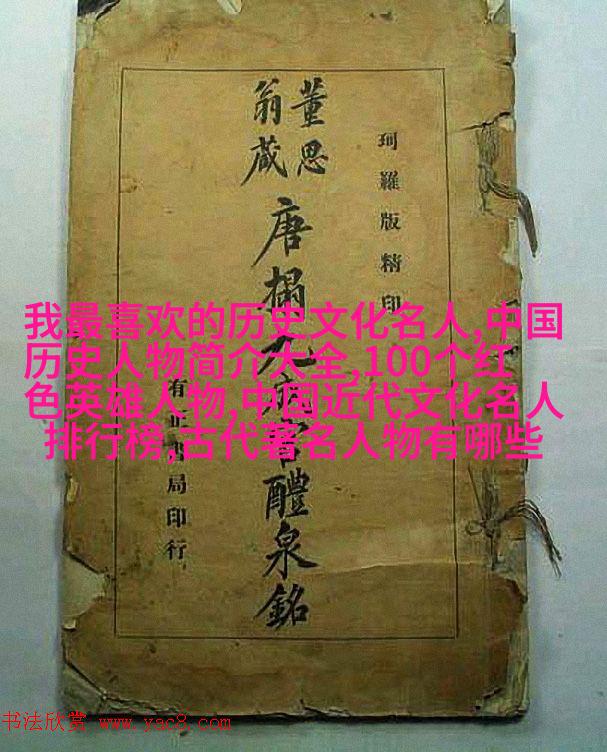 珂羅版精印
董思
翁藏
唐搨九宮醴泉銘
有正書局印行
我最喜欢的历史文化名人,中国
历史人物简介大全,100个红
色英雄人物,中国近代文化名人
排行榜,古代著名人物有哪些
书法欣赏 www.yac8.com